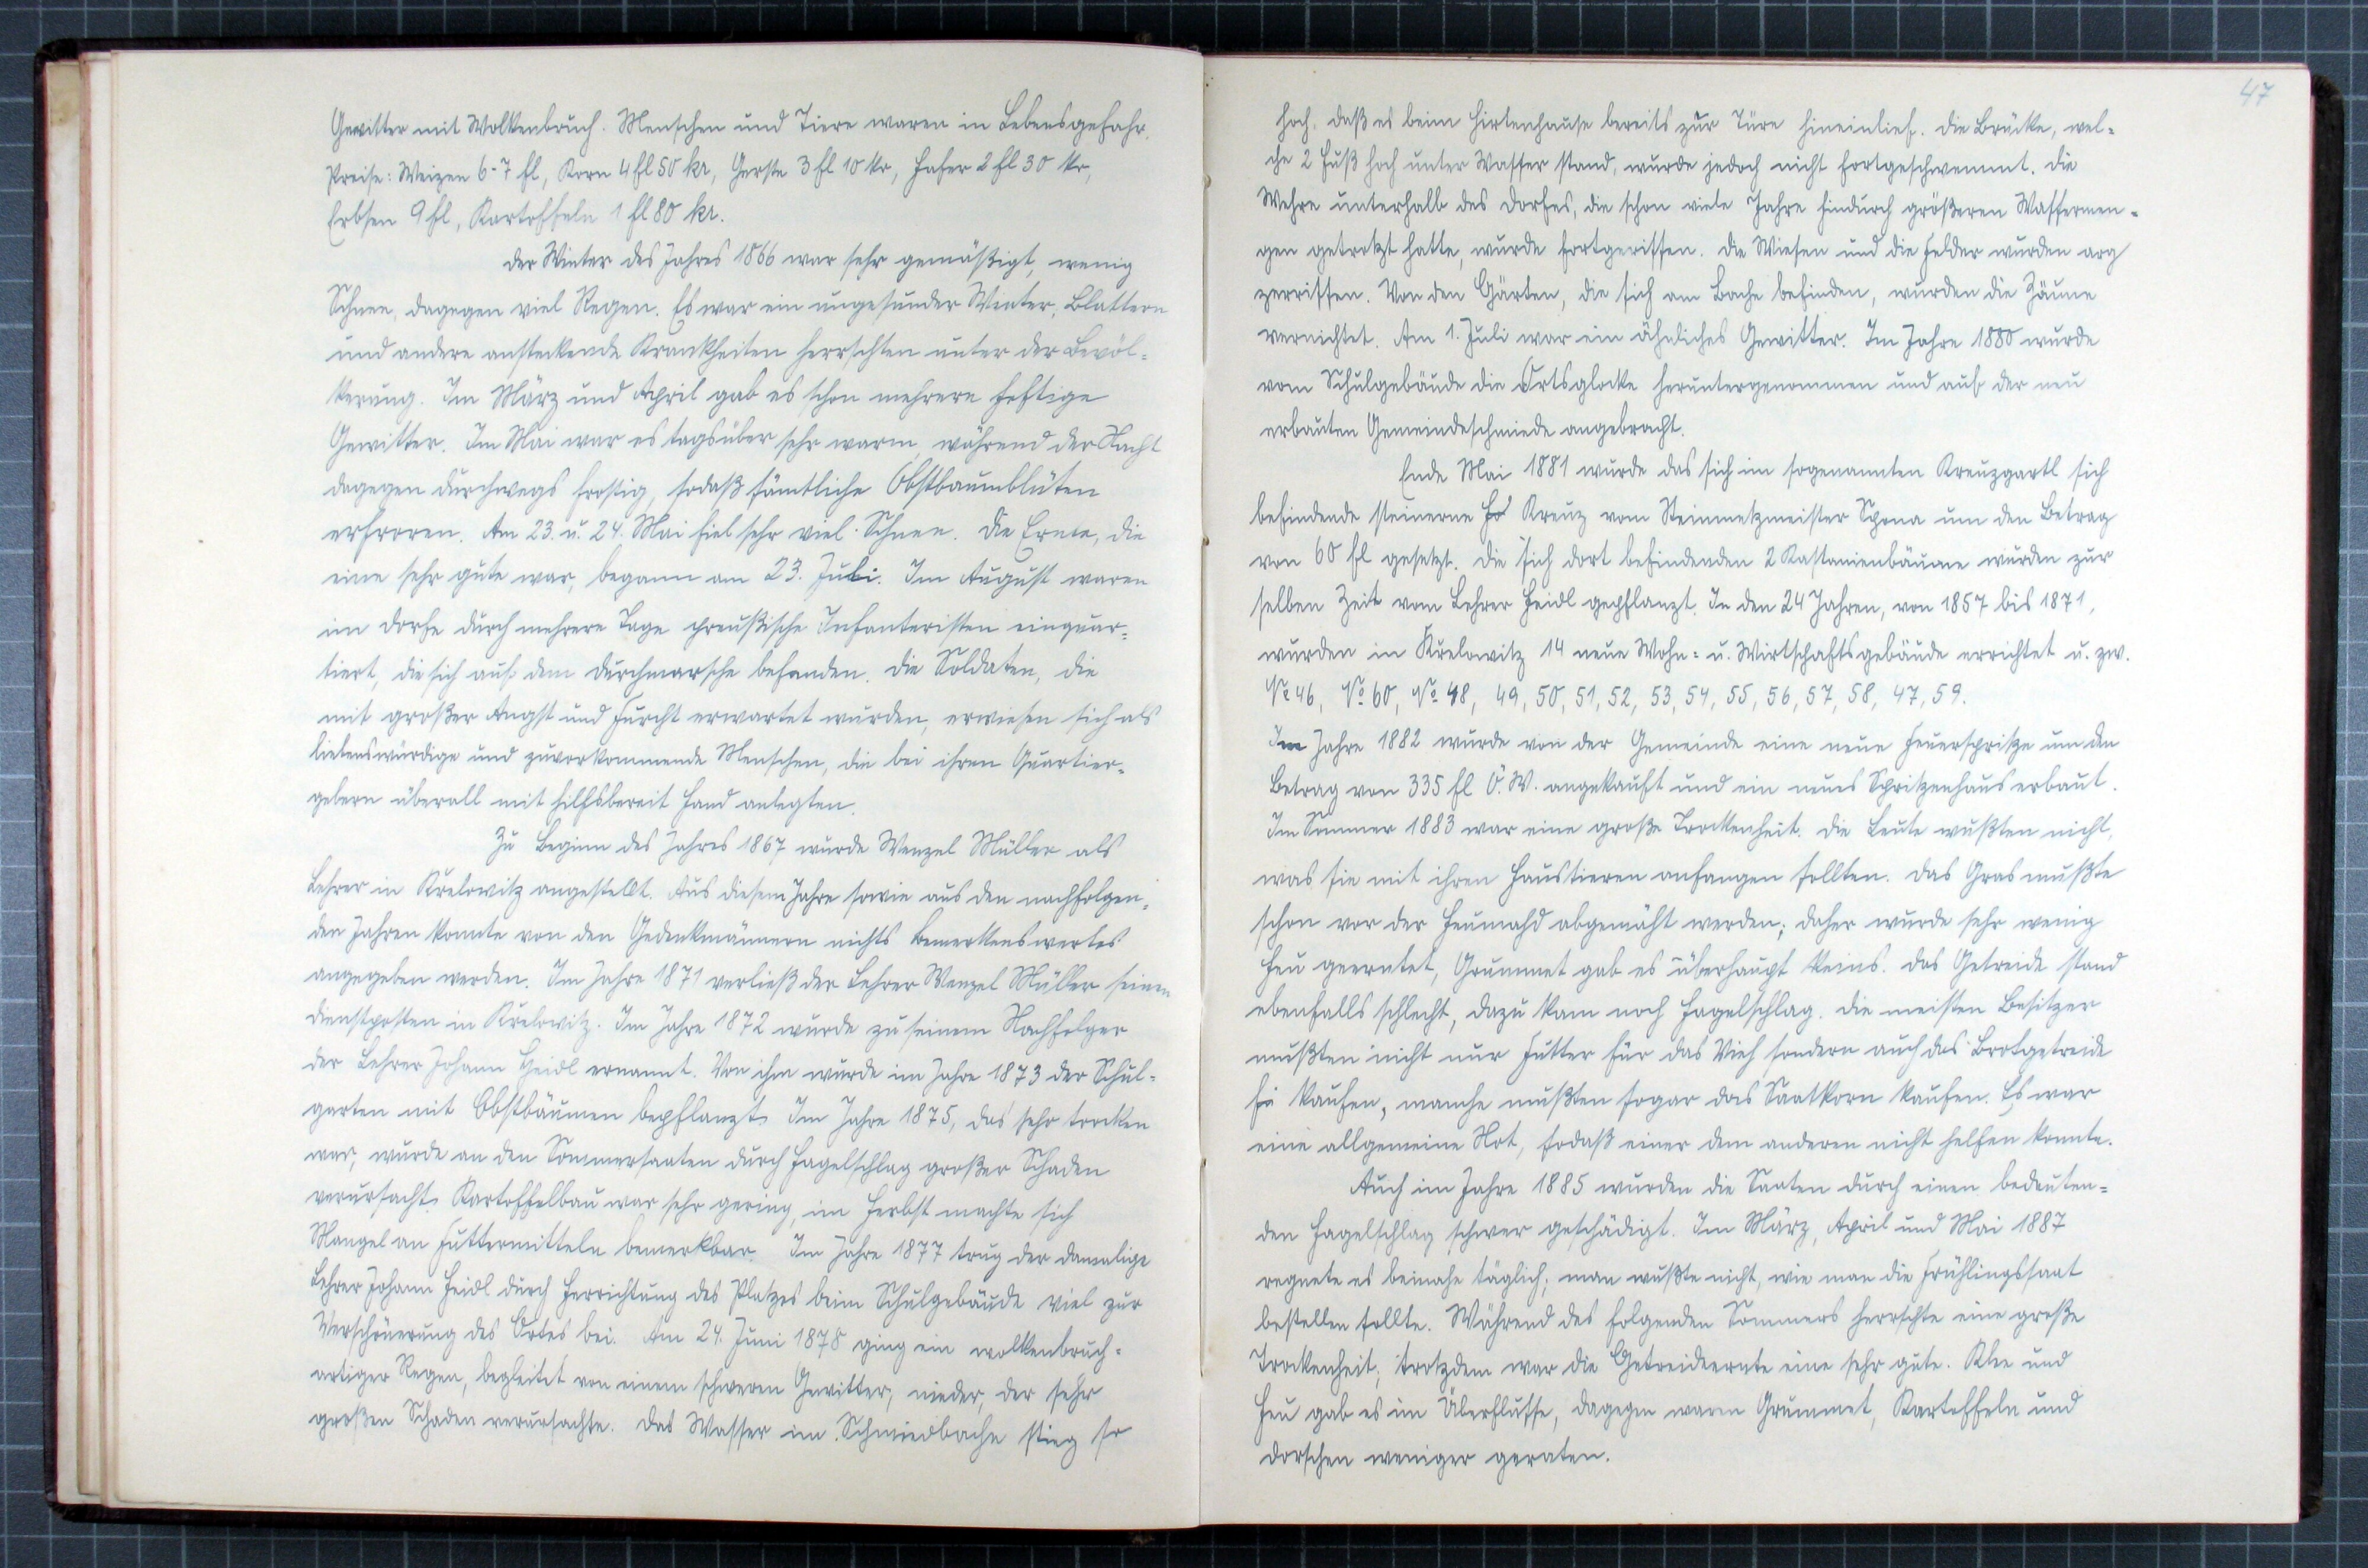 Gewitter mit Wolkenbruch. Menschen und Tiere waren in Lebensgefahr.
Preise: Weizen 6-7 fl, Korn 4 fl 50 kr, Gerste 3 fl 10 kr, Hafer 2 fl 30 kr,
Erbsen 9 fl, Kartoffeln 1 fl 80 kr.
Der Winter des Jahres 1866 war sehr gemäßigt, wenig
Schnee, dagegen viel Regen. Es war ein ungesunder Winter, Blattern
und andere ansteckende Krankheiten herrschten unter der Bevöl-
kerung. Im März und April gab es schon mehrere heftige
Gewitter. Im Mai war es tagsüber sehr warm, während der Nacht
dagegen durchwegs frostig, sodaß sämtliche Obstbaumblüten
erfroren. Am 23. u. 24. Mai fiel sehr viel Schnee. Die Ernte, die
eine sehr gute war, begann am 23. Juli. Im August waren
im Dorfe durch mehrere Tage preußische Infanteristen einquar-
tiert, die sich auf dem Durchmarsche befanden. Die Soldaten, die
mit großer Angst und Furcht erwartet wurden, erwiesen sich als
liebenswürdige und zuvorkommende Menschen, die bei ihren Quartier-
gebern überall mit hilfsbereit Hand anlegten.
Zu Beginn des Jahres 1867 wurde Wenzel Müller als
Lehrer in Krelowitz angestellt. Aus diesem Jahre sowie aus den nachfolgen-
den Jahren konnte von den Gedenkmännern nichts Bemerkenswertes
angegeben werden. Im Jahre 1871 verließ der Lehrer Wenzel Müller seinen
Dienstposten in Krelowitz. Im Jahre 1872 wurde zu seinem Nachfolger
der Lehrer Johann Heidl ernannt. Von ihm wurde im Jahre 1873 der Schul-
garten mit Obstbäumen bepflanzt. Im Jahre 1875, das sehr trocken
war, wurde an den Sommersaaten durch Hagelschlag großer Schaden
verursacht. Kartoffelbau war sehr gering, im Herbst machte sich
Mangel an Futtermitteln bemerkbar. Im Jahre 1877 trug der damalige
Lehrer Johann Heidl durch Herrichtung des Platzes beim Schulgebäude viel zur
Verschönerung des Ortes bei. Am 24. Juni 1878 ging ein wolkenbruch-
artiger Regen, begleitet von einem schweren Gewitter, nieder, der sehr
großen Schaden verursachte. Das Wasser im Schmiedbache stieg so
47
hoch, daß es beim Hirtenhause bereits zur Türe hineinlief. Die Brücke, wel-
che 2 Fuß hoch unter Wasser stand, wurde jedoch nicht fortgeschwemmt. Die
Wehre unterhalb des Dorfes, die schon viele Jahre hindurch größeren Wassermen-
gen getrotzt hatte, wurde fortgerissen. Die Wiesen und die Felder wurden arg
zerrissen. Von den Gärten, die sich am Bache befinden, wurden die Zäune
vernichtet. Am 1. Juli war ein ähnliches Gewitter. Im Jahre 1880 wurde
vom Schulgebäude die Ortsglocke heruntergenommen und auf der neu
erbauten Gemeindeschmiede angebracht.
Ende Mai 1881 wurde das sich im sogenannten Kreuzgartl sich
befindende steinerne Kreuz vom Steinmetzmeister Spona um den Betrag
von 60 fl gesetzt. Die sich dort befindenden 2 Kastanienbäume wurden zur
selben Zeit vom Lehrer Heidl gepflanzt. In den 24 Jahren, von 1857 bis 1871,
wurden in Krelowitz 14 neue Wohn- u. Wirtschaftsgebäude errichtet u. zw.
No 46, No 60, No 48, 49, 50, 51, 52, 53, 54, 55, 56, 57, 58, 47, 59.
Im Jahre 1882 wurde von der Gemeinde eine neue Feuerspritze um den
Betrag von 335 fl Ö. W. angekauft und ein neues Spritzenhaus erbaut.
Im Sommer 1883 war eine große Trockenheit. Die Leute wußten nicht,
was sie mit ihren Haustieren anfangen sollten. Das Gras mußte
schon vor der Heumahd abgemäht werden; daher wurde sehr wenig
Heu geerntet, Grummet gab es überhaupt keins. Das Getreide stand
ebenfalls schlecht, dazu kam noch Hagelschlag. Die meisten Besitzer
mußten nicht nur Futter für das Vieh sondern auch das Brotgetreide
kaufen, manche mußten sogar das Saatkorn kaufen. Es war
eine allgemeine Not, sodaß einer dem anderen nicht helfen konnte.
Auch im Jahre 1885 wurden die Saaten durch einen bedeuten-
den Hagelschlag schwer geschädigt. Im März, April und Mai 1887
regnete es beinahe täglich; man wußte nicht, wie man die Frühlingssaat
bestellen sollte. Während des folgenden Sommers herrschte eine große
Trockenheit; trotzdem war die Getreideernte eine sehr gute. Klee und
Heu gab es im Überflusse, dagegen waren Grummet, Kartoffeln und
Dorschen weniger geraten.